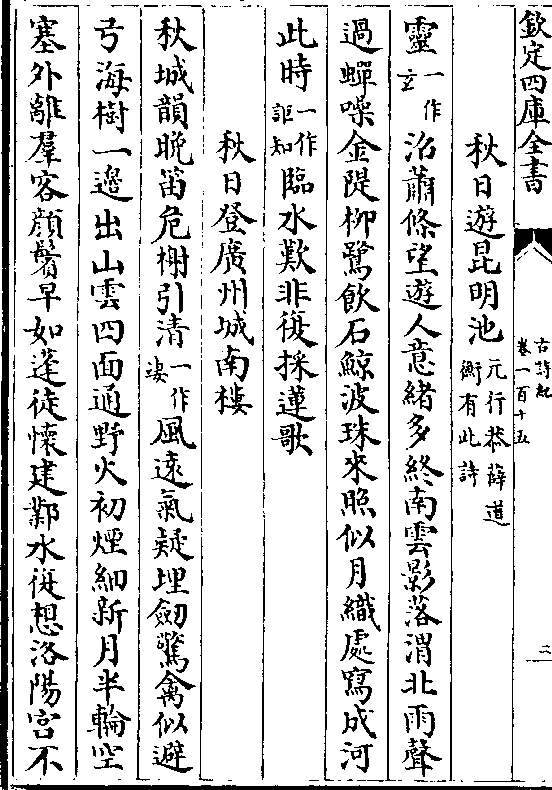 欽定四庫全書
古詩紀
卷一百十五
三
秋日遊昆明池元行恭薛道衡有此詩
靈一作玄沼蕭條望遊人意緒多終南雲影落渭北雨聲
過蟬噪金隄柳鷺飲石鯨波珠來照似月織處寫成河
此時一作詎知臨水歎非復採蓮歌
秋日登廣州城南樓
秋城韻晩笛危榭引清一作淒風遠氣疑埋劒驚禽似避
弓海樹一邊出山雲四面通野火初煙細新月半輪空
塞外離羣客顔鬢早如蓬徒懷建鄴水復想洛陽宮不